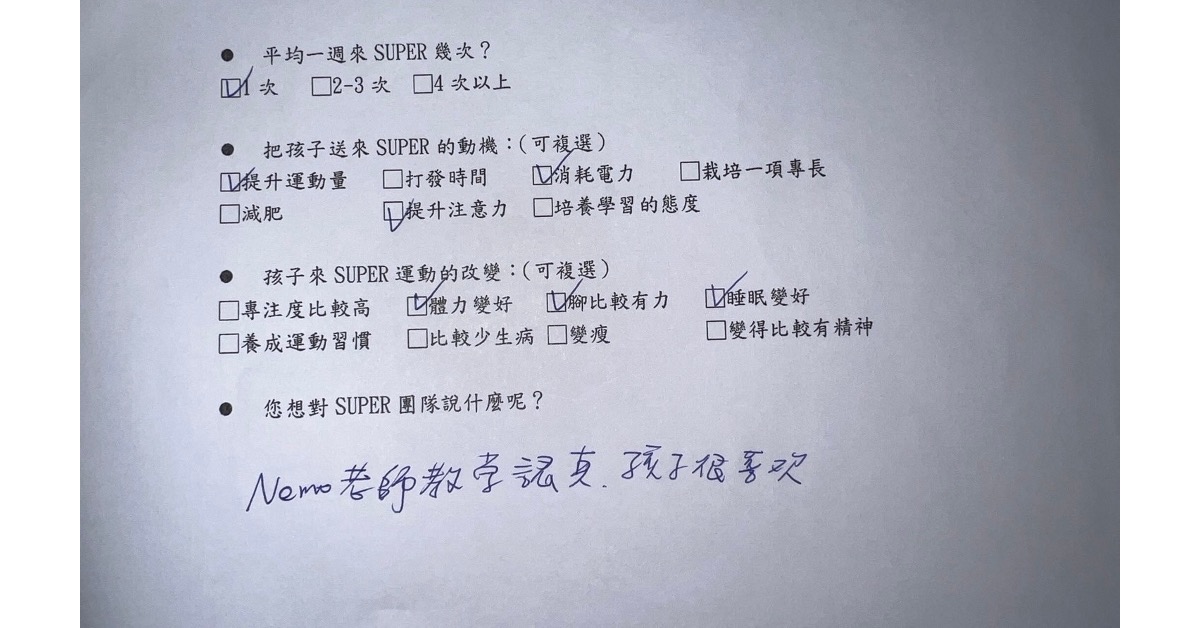 ● 平均一週來 SUPER 幾次？
☑1 次 □2-3 次 □4 次以上
● 把孩子送來 SUPER 的動機：(可複選)
☑提升運動量 □打發時間 ☑消耗電力 □栽培一項專長
□減肥 ☑提升注意力 □培養學習的態度
● 孩子來 SUPER 運動的改變：(可複選)
□專注度比較高 ☑體力變好 ☑腳比較有力 ☑睡眠變好
□養成運動習慣 □比較少生病 □變瘦 □變得比較有精神
● 您想對 SUPER 團隊說什麼呢？
Nemo老師教学認真．孩子很喜欢